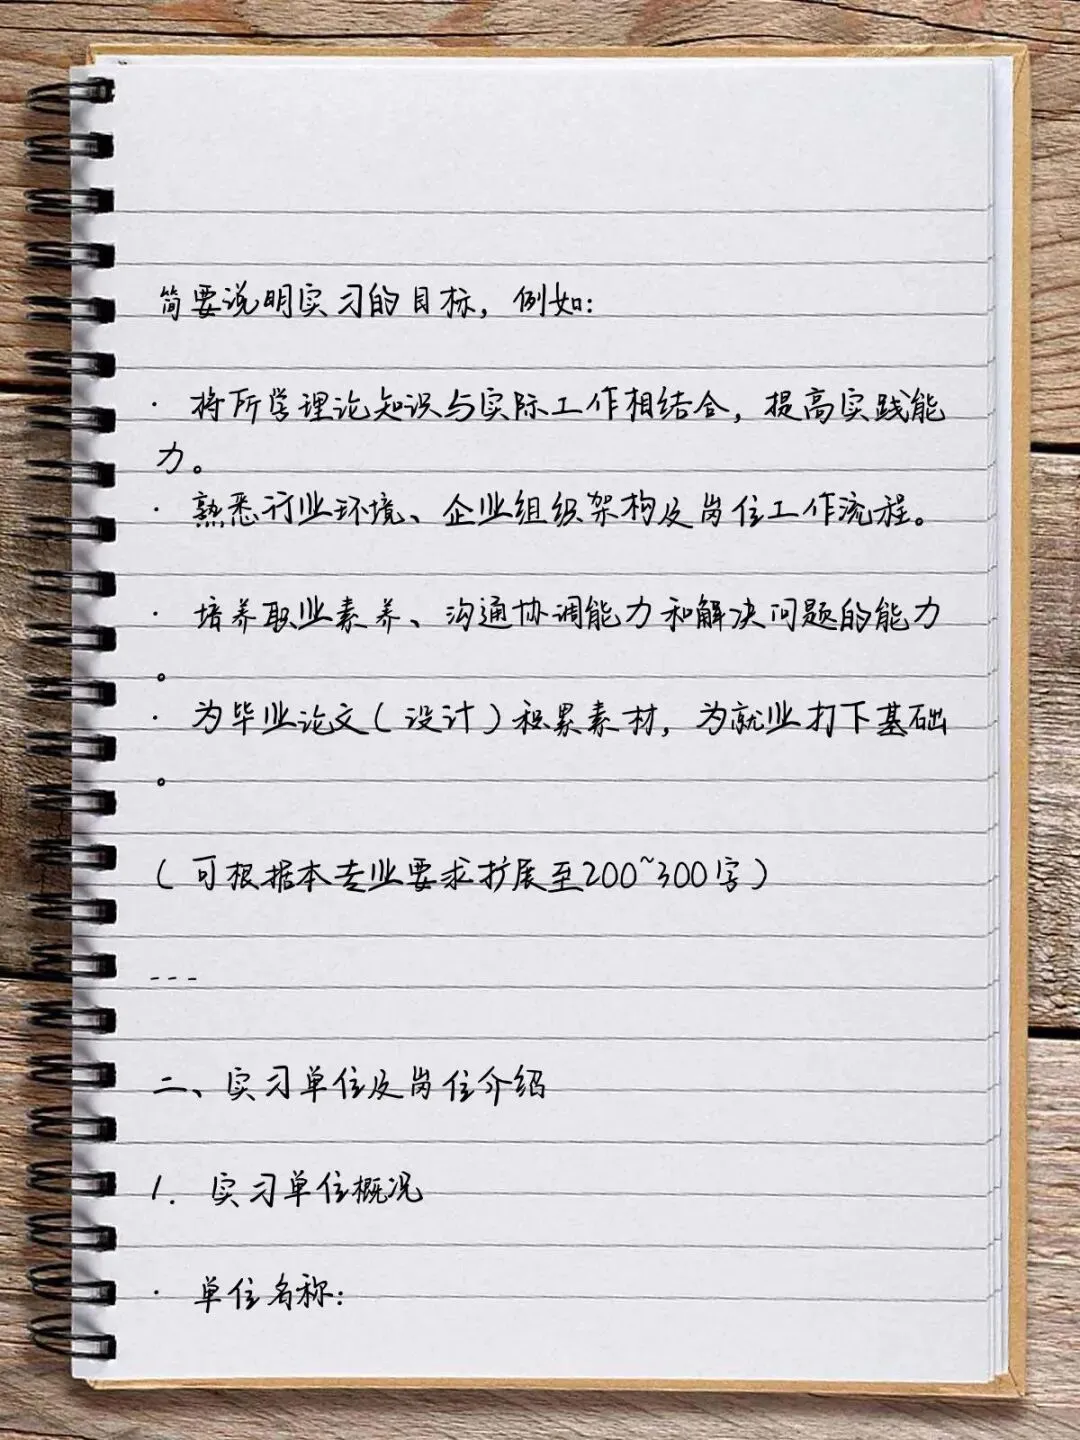 简要说明实习的目标，例如：
· 将所学理论知识与实际工作相结合，提高实践能
力。
· 熟悉行业环境、企业组织架构及岗位工作流程。
· 培养职业素养、沟通协调能力和解决问题的能力
。
· 为毕业论文（设计）积累素材，为就业打下基础
。
（可根据本专业要求扩展至200~300字）
---
二、实习单位及岗位介绍
1. 实习单位概况
· 单位名称：